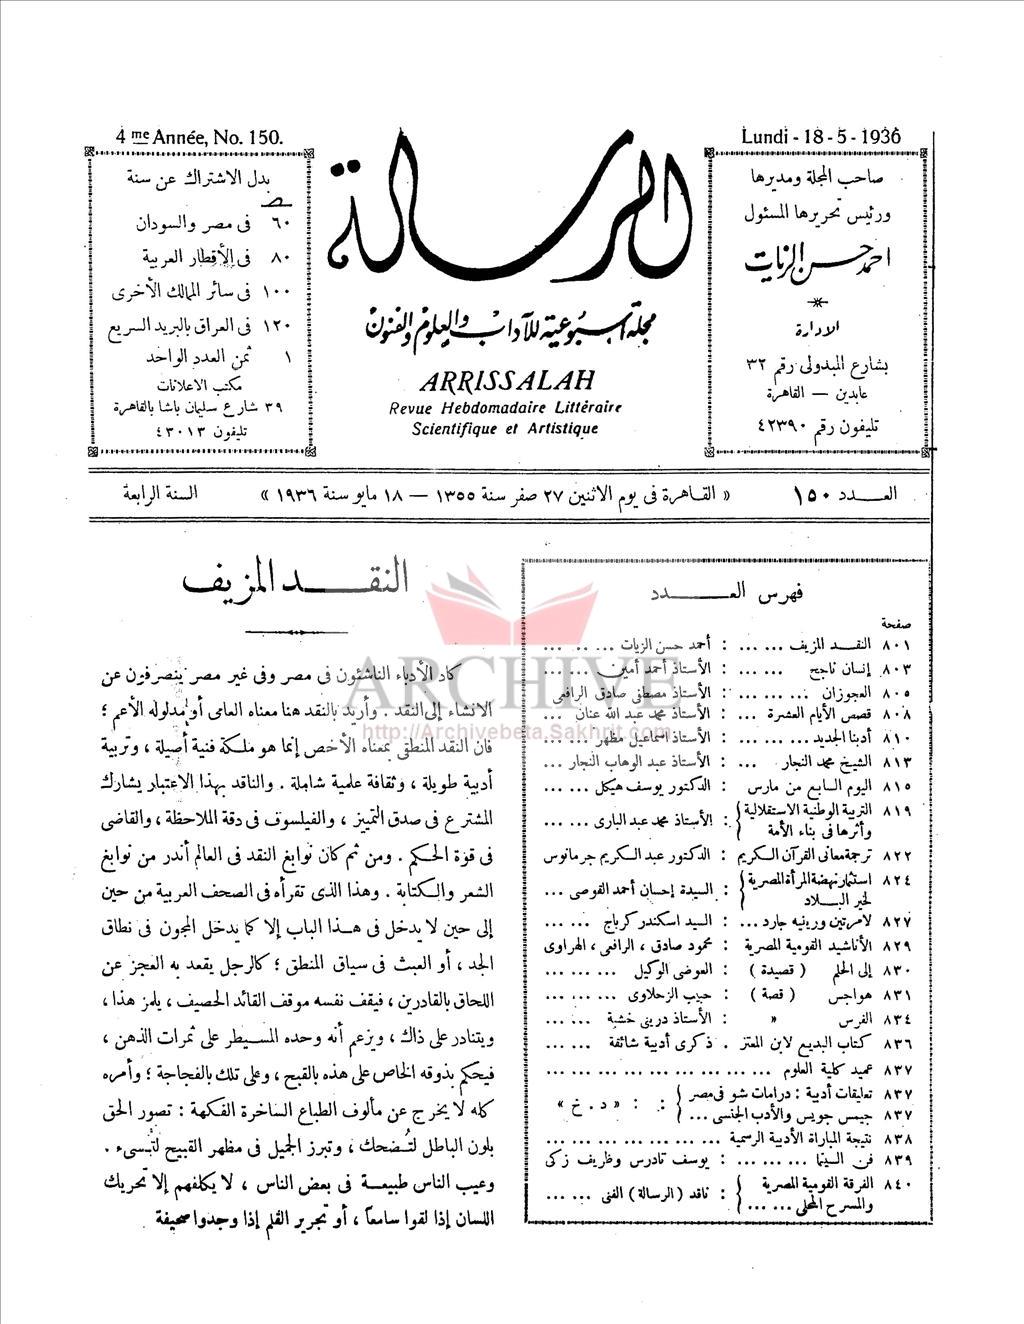 4me Année, No. 150.
بدل الاشتراك عن سنة
٦٠ فى مصر والسودان
٨٠ فى الأقطار العربية
١٠٠ فى سائر الممالك الأخرى
١٢٠ فى العراق بالبريد السريع
١ ثمن العدد الواحد
مكتب الاعلانات
٣٩ شارع سليمان باشا بالقاهرة
تليفون ٤٣٠١٣
الرسالة
مجلة أسبوعية للآداب والعلوم والفنون
ARRISSALAH
Revue Hebdomadaire Littéraire
Scientifique et Artistique
Lundi - 18 - 5 - 1936
صاحب المجلة ومديرها
ورئيس تحريرها المسئول
احمد حسن الزيات
الادارة
بشارع المبدولى رقم ٣٢
عابدين — القاهرة
تليفون رقم ٤٢٣٩٠
العـــدد ١٥٠ « القاهرة فى يوم الاثنين ٢٧ صفر سنة ١٣٥٥ — ١٨ مايو سنة ١٩٣٦ » السنة الرابعة
فهرس العـــدد
صفحة
٨٠١ النقـد المزيف ... ... : أحمد حسن الزيات ... ... ...
٨٠٣ إنسان ناجح ... ... : الأستاذ أحمد أمين ... ...
٨٠٥ العجوزان ... ... ... : الأستاذ مصطفى صادق الرافعى
٨٠٨ قصص الأيام العشرة ... : الأستاذ محمد عبد الله عنان ...
٨١٠ أدبنا الجديد ... ... ... : الأستاذ اسماعيل مظهر ... ...
٨١٣ الشيخ محمد النجار ... : الأستاذ عبد الوهاب النجار ...
٨١٥ اليوم السابع من مارس : الدكتور يوسف هيكل ... ...
٨١٩ التربية الوطنية الاستقلالية وأثرها فى بناء الأمة : الأستاذ محمد عبد البارى ... ...
٨٢٢ ترجمة معانى القرآن الكريم : الدكتور عبد الكريم جرمانوس
٨٢٤ استثمار نهضة المرأة المصرية لخير البـلاد : السيدة إحسان أحمد القوصى ...
٨٢٧ لامرتين ورينيه جارد ... : السيد اسكندر كرباج ... ...
٨٢٩ الأناشيد القومية المصرية : محمود صادق ، الرافعى ، الهراوى
٨٣٠ إلى الحلم ( قصيدة ) : العوضى الوكيل ... ... ...
٨٣١ هواجس ( قصة ) : حبيب الزحلاوى ... ... ...
٨٣٤ الفرس » : الأستاذ درينى خشبة ... ...
٨٣٦ كتاب البديع لابن المعتز . ذكرى أدبية شائقة ... ...
٨٣٧ عميد كلية العلوم ... ... ... ... ... ... ...
٨٣٧ تعليقات أدبية : درامات شو فى مصر
٨٣٧ جيمس جويس والأدب الجنسى ... : « د . خ »
٨٣٨ نتيجة المباراة الأدبية الرسمية ... ... ... ... ...
٨٣٩ فن السينما ... ... ... : يوسف تادرس وظريف زكى
٨٤٠ الفرقة القومية المصرية والمسرح المحلى ... ... : ناقد ( الرسالة ) الفنى ... ...
النقـــد المزيف
كاد الأدباء الناشئون فى مصر وفى غير مصر ينصرفون عن
الانشاء إلى النقد . وأريد بالنقد هنا معناه العامى أو مدلوله الأعم ؛
فان النقد المنطقى بمعناه الأخص إنما هو ملكة فنية أصيلة ، وتربية
أدبية طويلة ، وثقافة علمية شاملة . والناقد بهذا الاعتبار يشارك
المشترع فى صدق التمييز ، والفيلسوف فى دقة الملاحظة ، والقاضى
فى قوة الحكم . ومن ثم كان نوابغ النقد فى العالم أندر من نوابغ
الشعر والكتابة . وهذا الذى تقرأه فى الصحف العربية من حين
إلى حين لا يدخل فى هـذا الباب إلا كما يدخل المجون فى نطاق
الجد ، أو العبث فى سياق المنطق ؛ كالرجل يقعد به العجز عن
اللحاق بالقادرين ، فيقف نفسه موقف القائد الحصيف ، يلمز هذا ،
ويتنادر على ذاك ، ويزعم أنه وحده المسيطر على ثمرات الذهن ،
فيحكم بذوقه الخاص على هذه بالقبح ، وعلى تلك بالفجاجة ؛ وأمره
كله لا يخرج عن مألوف الطباع الساخرة الفكهة : تصور الحق
بلون الباطل لتُضحك ، وتبرز الجميل فى مظهر القبيح لتسىء .
وعيب الناس طبيعـة فى بعض الناس ، لا يكلفهم إلا تحريك
اللسان إذا لقوا سامعاً ، أو تجرير القلم إذا وجدوا صحيفة
ARCHIVE
http://Archivebeta.Sakhrit.com